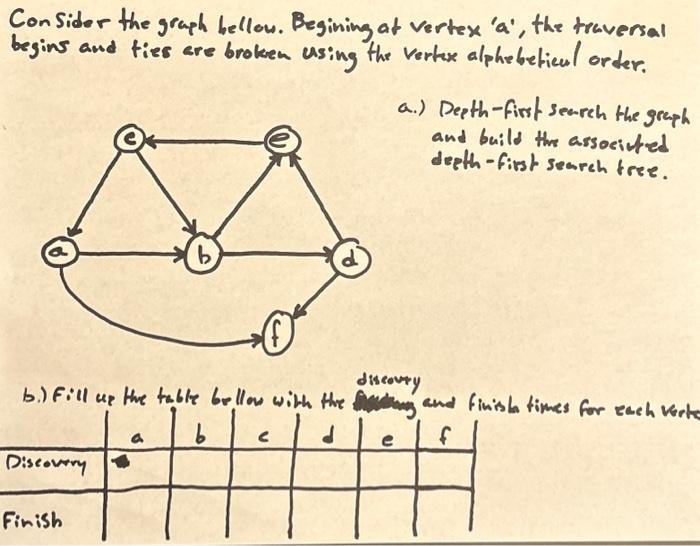 Consider the graph bellow. Begining at vertex 'a', the traversal
begins and ties are broken using the vertex alphebetical order.
a.) Depth-first search the graph
and build the associated
depth-first search tree.
c
e
a
b
d
f
discovry
b.) Fill up the table bellow with the and finish times for each
a b c d e f
Discovery
Finish